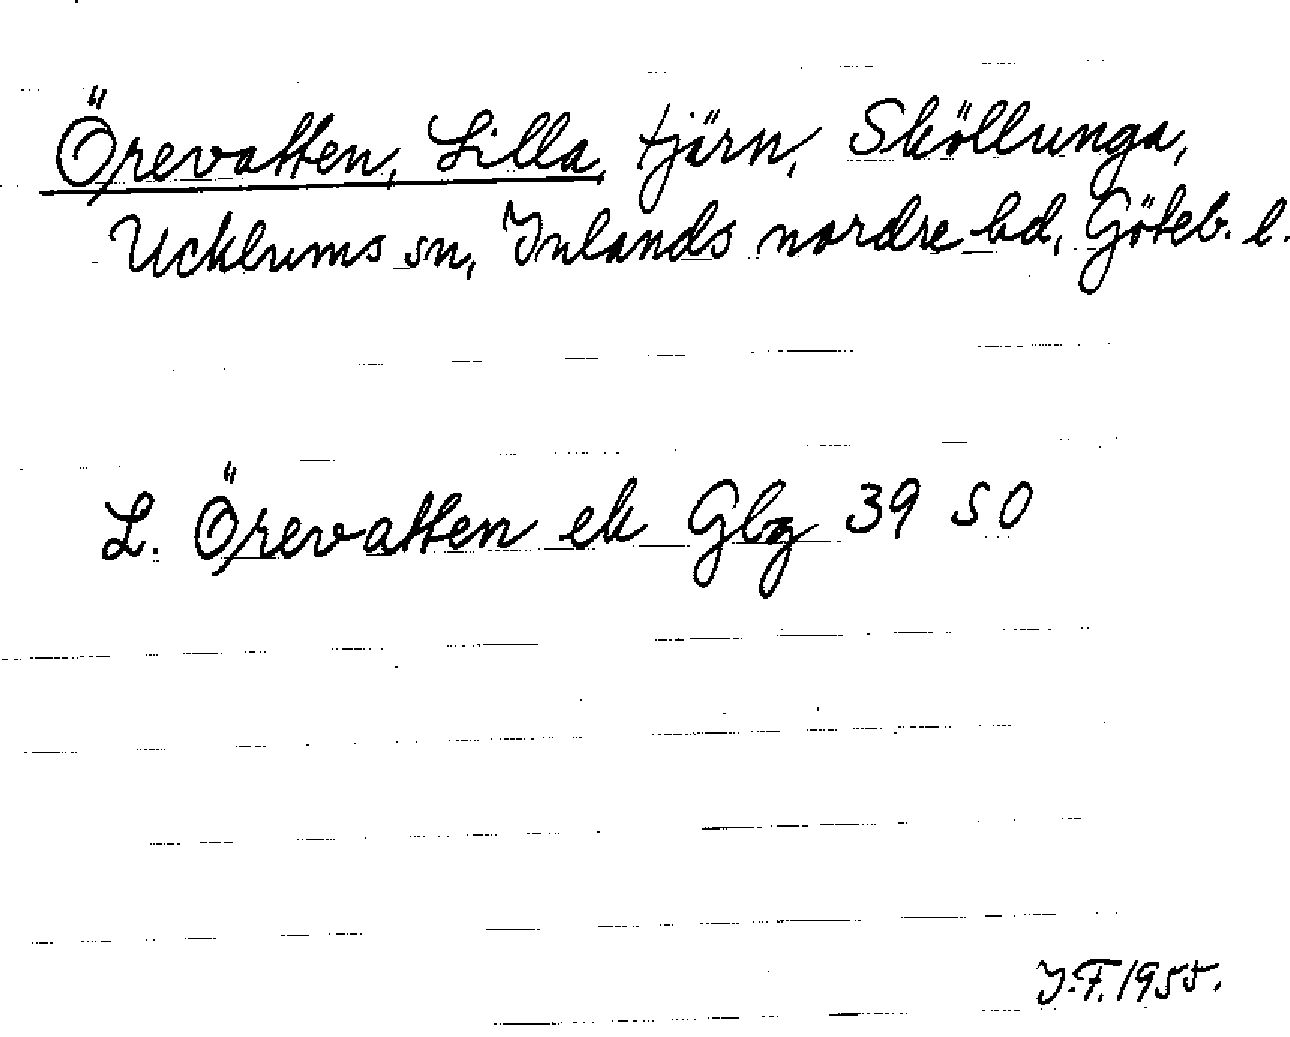 Örevatten, Lilla, tjärn, Sköllunga,
Ucklums sn, Inlands nordre hd, Göteb. l.
L. Örevatten ek Gbg 39 SO
I.F. 1955.